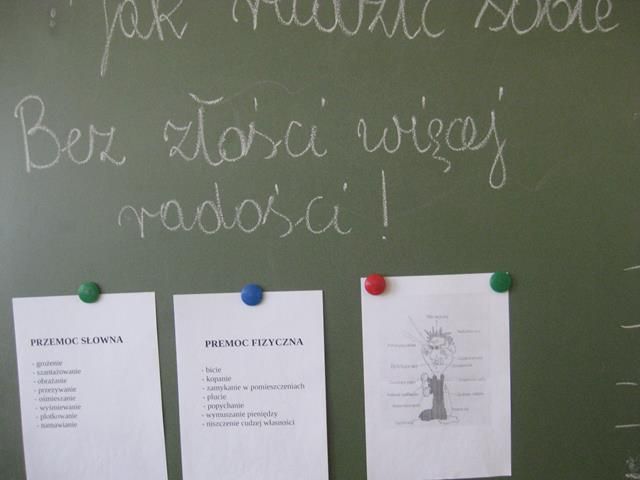 jak radzić sobie
Bez złości więcej
radości!
PRZEMOC SŁOWNA
- grożenie
- szantażowanie
- obrażanie
- przezywanie
- ośmieszanie
- wyśmiewanie
- plotkowanie
- namawianie
PREMOC FIZYCZNA
- bicie
- kopanie
- zamykanie w pomieszczeniach
- plucie
- popychanie
- wymuszanie pieniędzy
- niszczenie cudzej własności